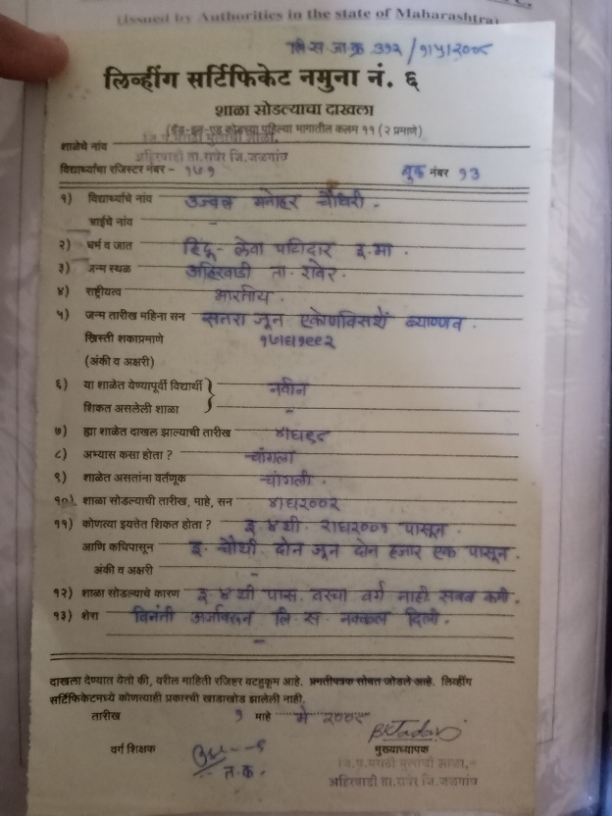 (issued by Authorities in the state of Maharashtra)
लि.स.जा.क्र ३१२ / १/५/२००८
लिव्हींग सर्टिफिकेट नमुना नं. ६
शाळा सोडल्याचा दाखला
पहिल्या भागातील कलम ११ (२ प्रमाणे)
शाळेचे नांव
अहिरवाडी ता.रावेर जि.जळगांव
विद्यार्थ्याचा रजिस्टर नंबर - १७१ बुक नंबर १३
१) विद्यार्थ्याचे नांव उज्वल मनोहर चौधरी.
आईचे नांव -
२) धर्म व जात हिंदू - लेवा पाटिदार इ.मा.
३) जन्म स्थळ अहिरवाडी ता. रावेर.
४) राष्ट्रीयत्व भारतीय.
५) जन्म तारीख महिना सन सतरा जून एकोणविसशें ब्याण्णव.
ख्रिस्ती शकाप्रमाणे १७/६/१९९२
(अंकी व अक्षरी)
६) या शाळेत येण्यापूर्वी विद्यार्थी नवीन
शिकत असलेली शाळा -
७) ह्या शाळेत दाखल झाल्याची तारीख
८) अभ्यास कसा होता ? चांगला
९) शाळेत असतांना वर्तणूक चांगली.
१०) शाळा सोडल्याची तारीख, माहे, सन
११) कोणत्या इयत्तेत शिकत होता ? इ. ४ थी. २/६/२००१ पासून.
आणि कधिपासून इ. चौथी. दोन जून दोन हजार एक पासून.
अंकी व अक्षरी -
१२) शाळा सोडल्याचे कारण इ. ४ थी पास. वरचा वर्ग नाही सबब कमी.
१३) शेरा विनंती अर्जावरून लि. स. नक्कल दिली.
-
दाखला देण्यात येतो की, वरील माहिती रजिष्टर बरहुकूम आहे. प्रमतीपत्रक सोबत जोडले आहे. लिव्हींग
सर्टिफिकेटमध्ये कोणत्याही प्रकारची खाडाखोड झालेली नाही.
तारीख १ माहे मे २००८
वर्ग शिक्षक मुख्याध्यापक
अहिरवाडी ता.रावेर जि.जळगांव